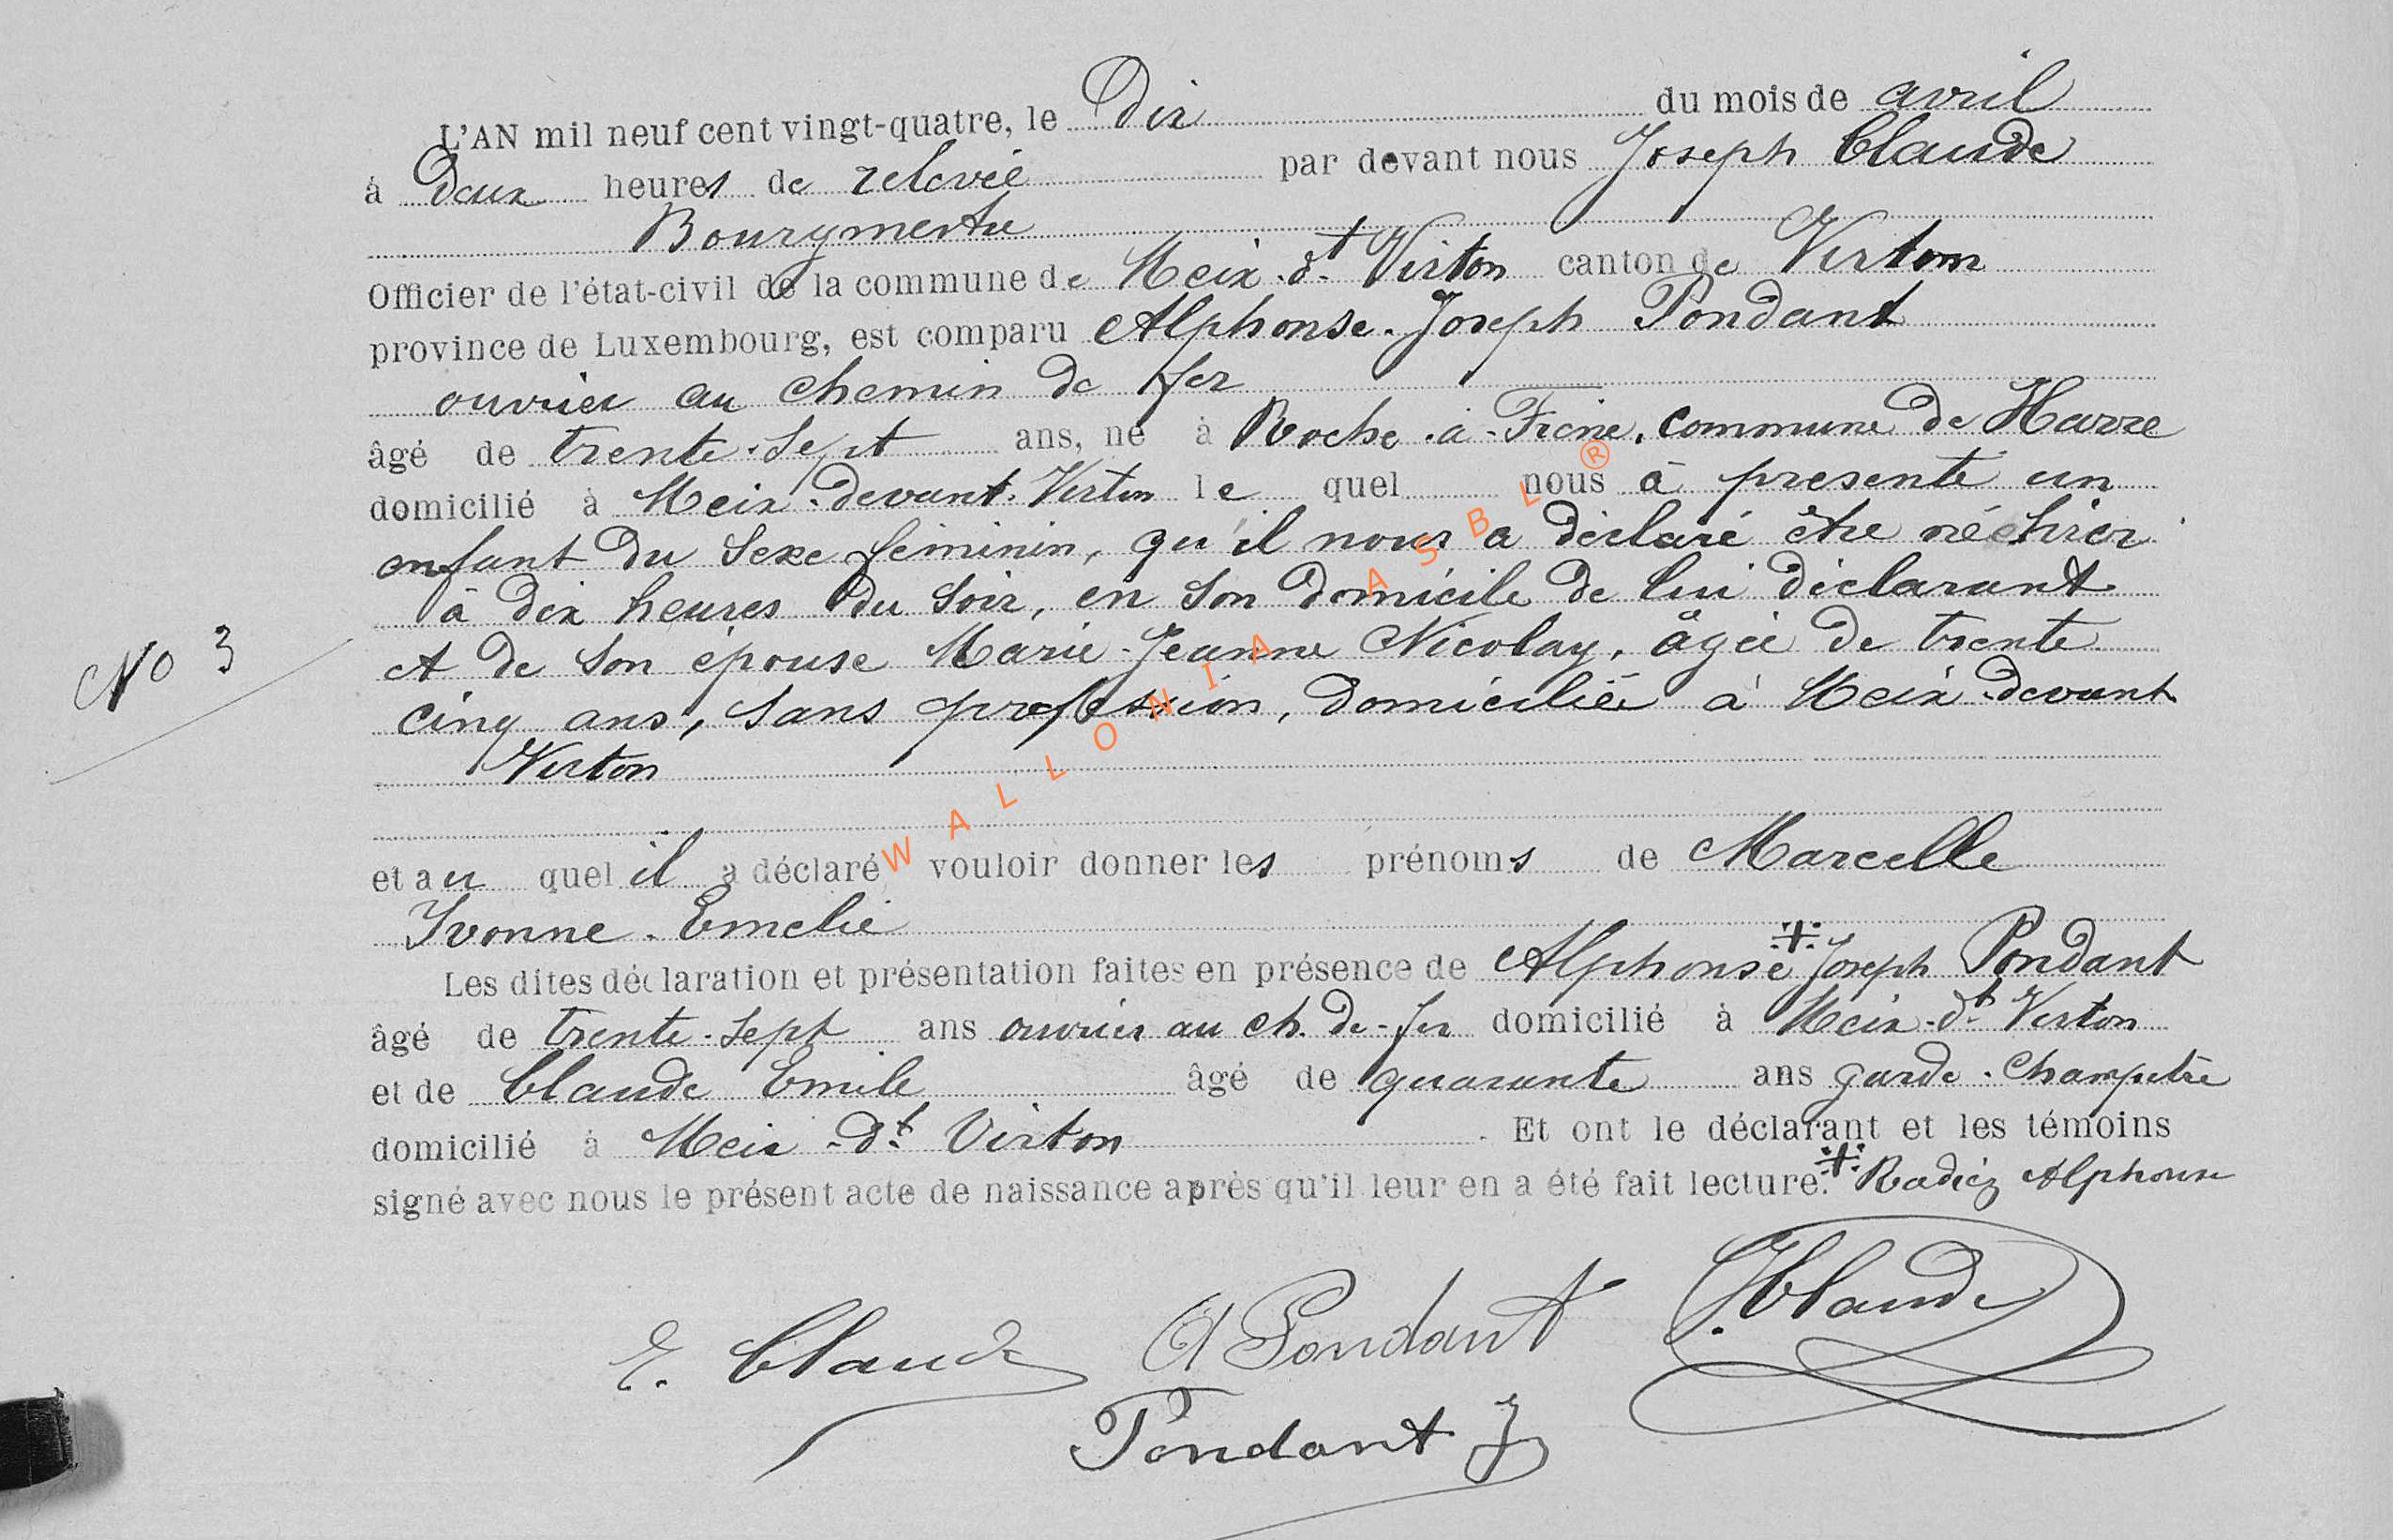 L'AN mil neuf cent vingt-quatre, le Dix du mois de avril
à Deux heures de relevée par devant nous Joseph Claude
Bourgmestre
Officier de l'état-civil de la commune de Meix-dt Virton canton de Virton
province de Luxembourg, est comparu Alphonse-Joseph Pondant
ouvrier au chemin de fer
âgé de trente-sept ans, né à Roche-à-Frêne, commune de Harre
domicilié à Meix-devant-Virton le quel nous à présenté un
enfant du sexe féminin, qu'il nous a déclaré être né hier
à dix heures du soir, en son domicile de lui déclarant
No 3
et de son épouse Marie-Jeanne Nicolay, âgée de trente
cinq ans, sans profession, domiciliée à Meix-devant
Virton
et au quel il a déclaré vouloir donner les prénoms de Marcelle
Yvonne-Emelie
Les dites déclaration et présentation faites en présence de Alphonse Joseph Pondant
âgé de trente-sept ans ouvrier au ch. de-fer domicilié à Meix-dt Virton
et de Claude Emile âgé de quarante ans garde-champêtre
domicilié à Meix-dt Virton. Et ont le déclarant et les témoins
signé avec nous le présent acte de naissance après qu'il leur en a été fait lecture. Alphonse
E. Claude A Pondant J. Claude
Pondant J
WALLONIA ASBL ®